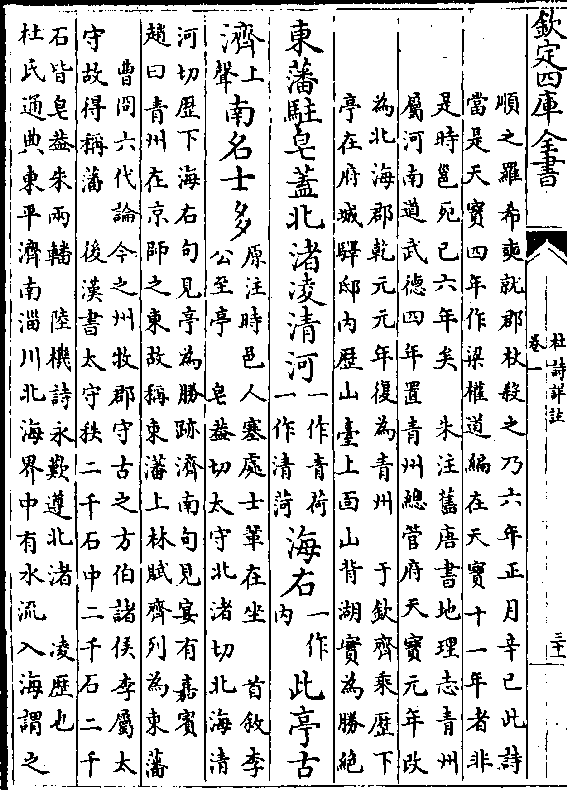 欽定四庫全書
杜詩詳註
卷一
三十一
順之羅希奭就郡杖殺之乃六年正月辛已此詩
當是天寶四年作梁權道編在天寶十一年者非
是時邕死已六年矣 朱注舊唐書地理志青州
屬河南道武德四年置青州總管府天寶元年改
為北海郡乾元元年復為青州 于欽齊乘歷下
亭在府城驛邸内歷山臺上面山背湖實為勝絶
東藩駐皂蓋北渚凌清河一作青荷一作清菏海右一作内此亭古
濟上聲南名士多原注時邑人蹇處士輩在坐 首敘李
公至亭 皂蓋切太守北渚切北海清
河切歷下海右句見亭為勝跡濟南句見宴有嘉賓
趙曰青州在京師之東故稱東藩上林賦齊列為東藩
曹冏六代論今之州牧郡守古之方伯諸侯李屬太
守故得稱藩 後漢書太守秩二千石中二千石二千
石皆皂蓋朱兩轓 陸機詩永歎遵北渚 凌歷也
杜氏通典東平濟南淄川北海界中有水流入海謂之